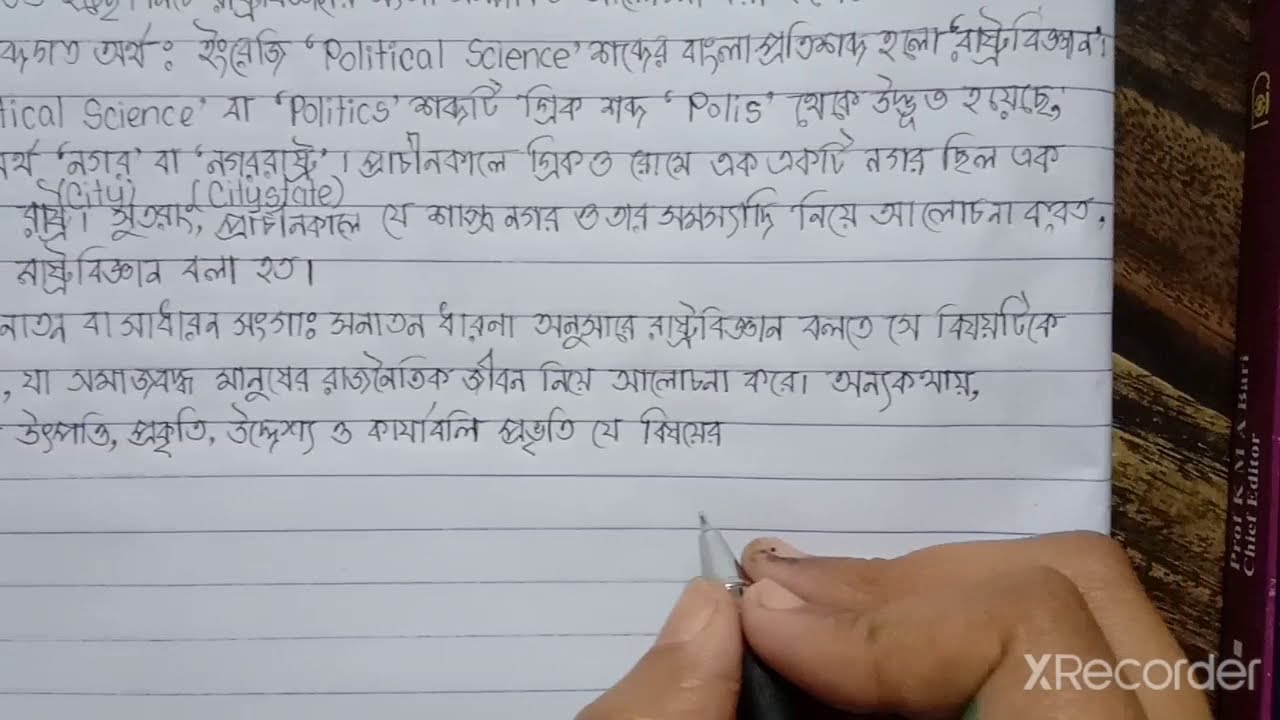 অর্থ : ইংরেজি 'Political Science' শব্দের বাংলা প্রতিশব্দ হলো 'রাষ্ট্রবিজ্ঞান'।
tical Science' বা 'Politics' শব্দটি গ্রিক শব্দ 'Polis' থেকে উদ্ভূত হয়েছে,
অর্থ 'নগর' বা 'নগররাষ্ট্র'। প্রাচীনকালে গ্রিক ও রোমে এক একটি নগর ছিল এক
(City) (Citystate)
রাষ্ট্র। সুতরাং, প্রাচীনকালে যে শাস্ত্র নগর ও তার সমস্যাদি নিয়ে আলোচনা করত,
রাষ্ট্রবিজ্ঞান বলা হত।
নাতন বা সাধারন সংগাঃ সনাতন ধারনা অনুসারে রাষ্ট্রবিজ্ঞান বলতে সে বিষয়টিকে
, যা সমাজবদ্ধ মানুষের রাজনৈতিক জীবন নিয়ে আলোচনা করে। অন্যকথায়,
উৎপত্তি, প্রকৃতি, উদ্দেশ্য ও কার্যাবলি প্রভৃতি যে বিষয়ের
Prof K M A Bari
Chief Editor
XRecorder